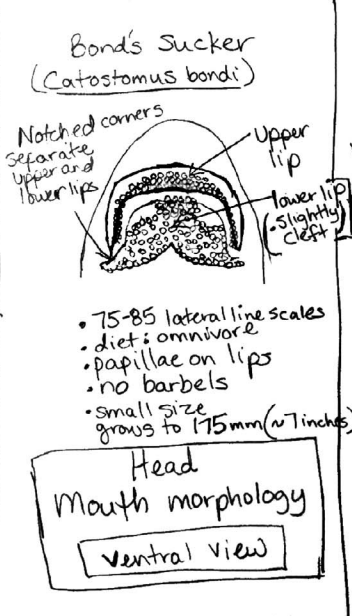 Bond's Sucker
(Catostomus bondi)
Notched corners
separate
upper and
lower lips
Upper
lip
lower lip
(• slightly)
cleft
• 75-85 lateral line scales
• diet: omnivore
• papillae on lips
• no barbels
• small size
grows to 175mm (~7 inches)
Head
Mouth morphology
Ventral view